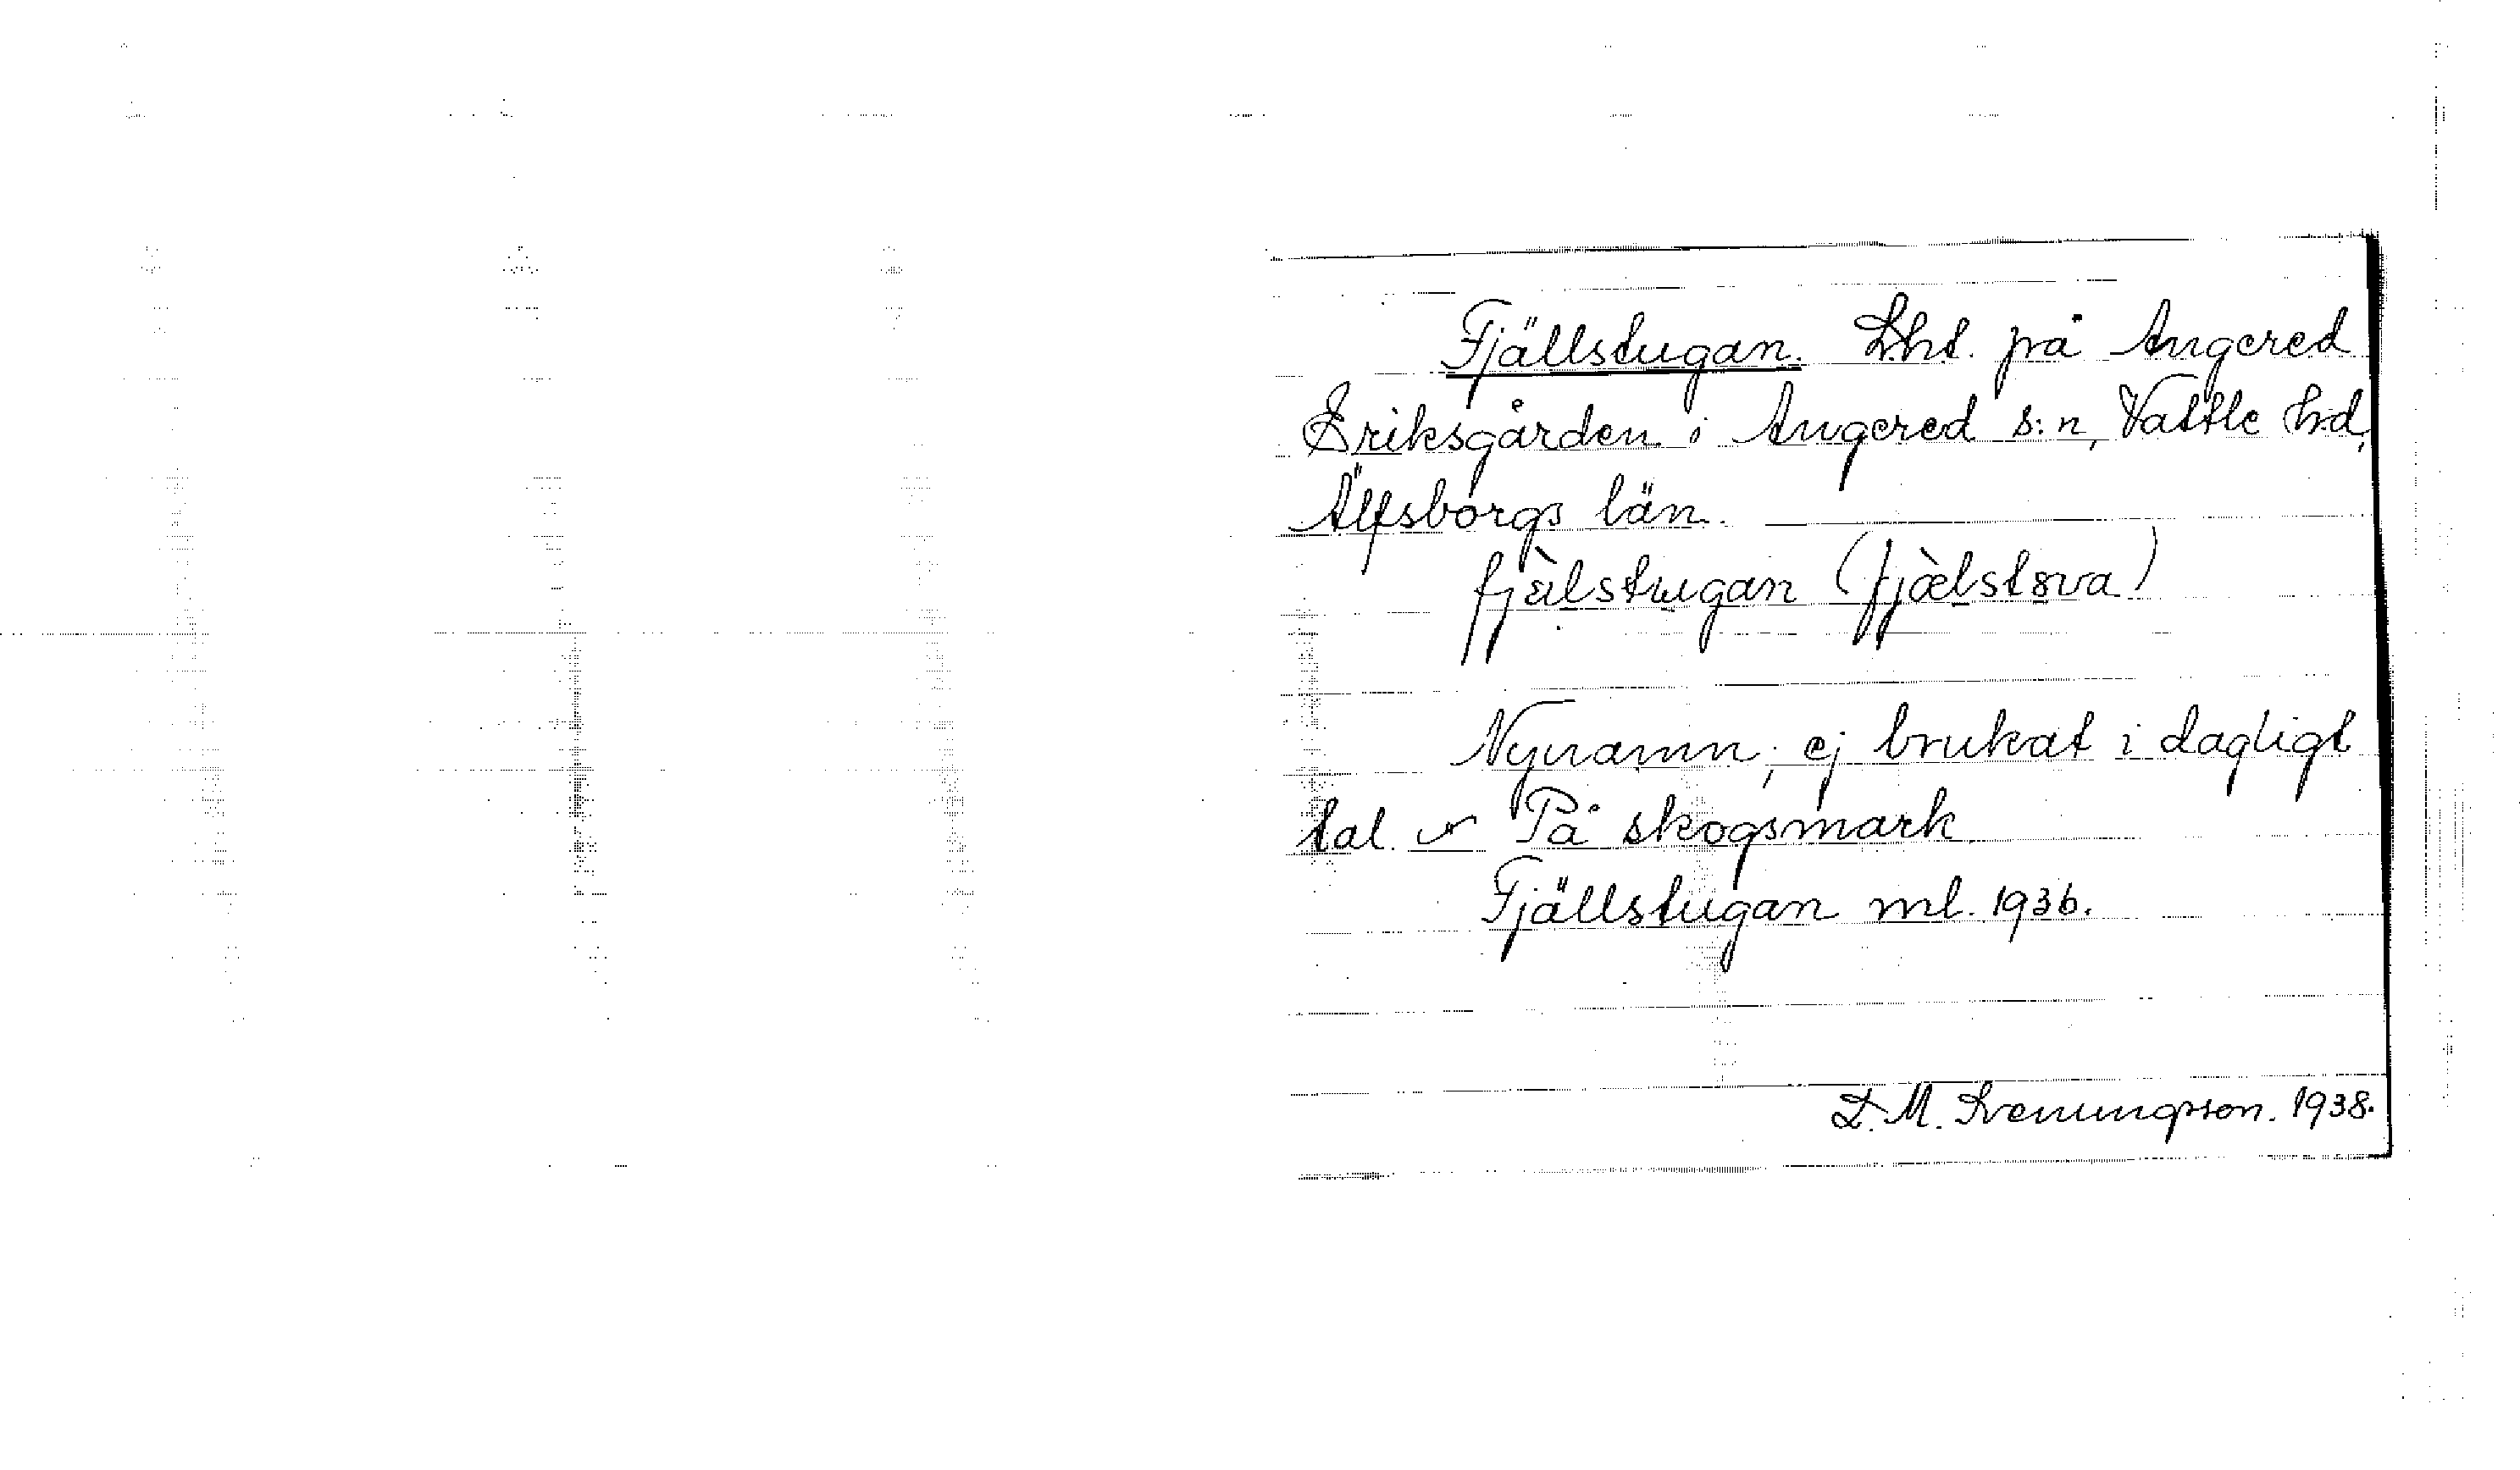 Fjällstugan. Lht. på Angered
Eriksgården i Angered s:n, Vättle hd,
Älfsborgs län.
fjälstugan (fjælstova)
Nynamn; ej brukat i dagligt
tal. – På skogsmark
Fjällstugan ml. 1936.
D. M. Sveningsson. 1938.